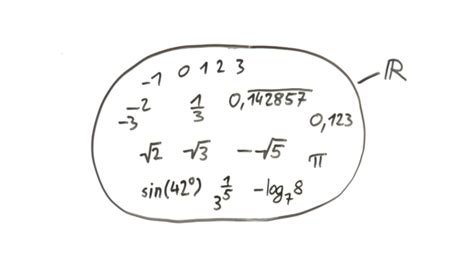 -1 0 1 2 3 ℝ
-2 1/3 0,1̅4̅2̅8̅5̅7̅
-3 0,123
√2 √3 -√5 π
sin(42°) 3^(1/5) -log₇8